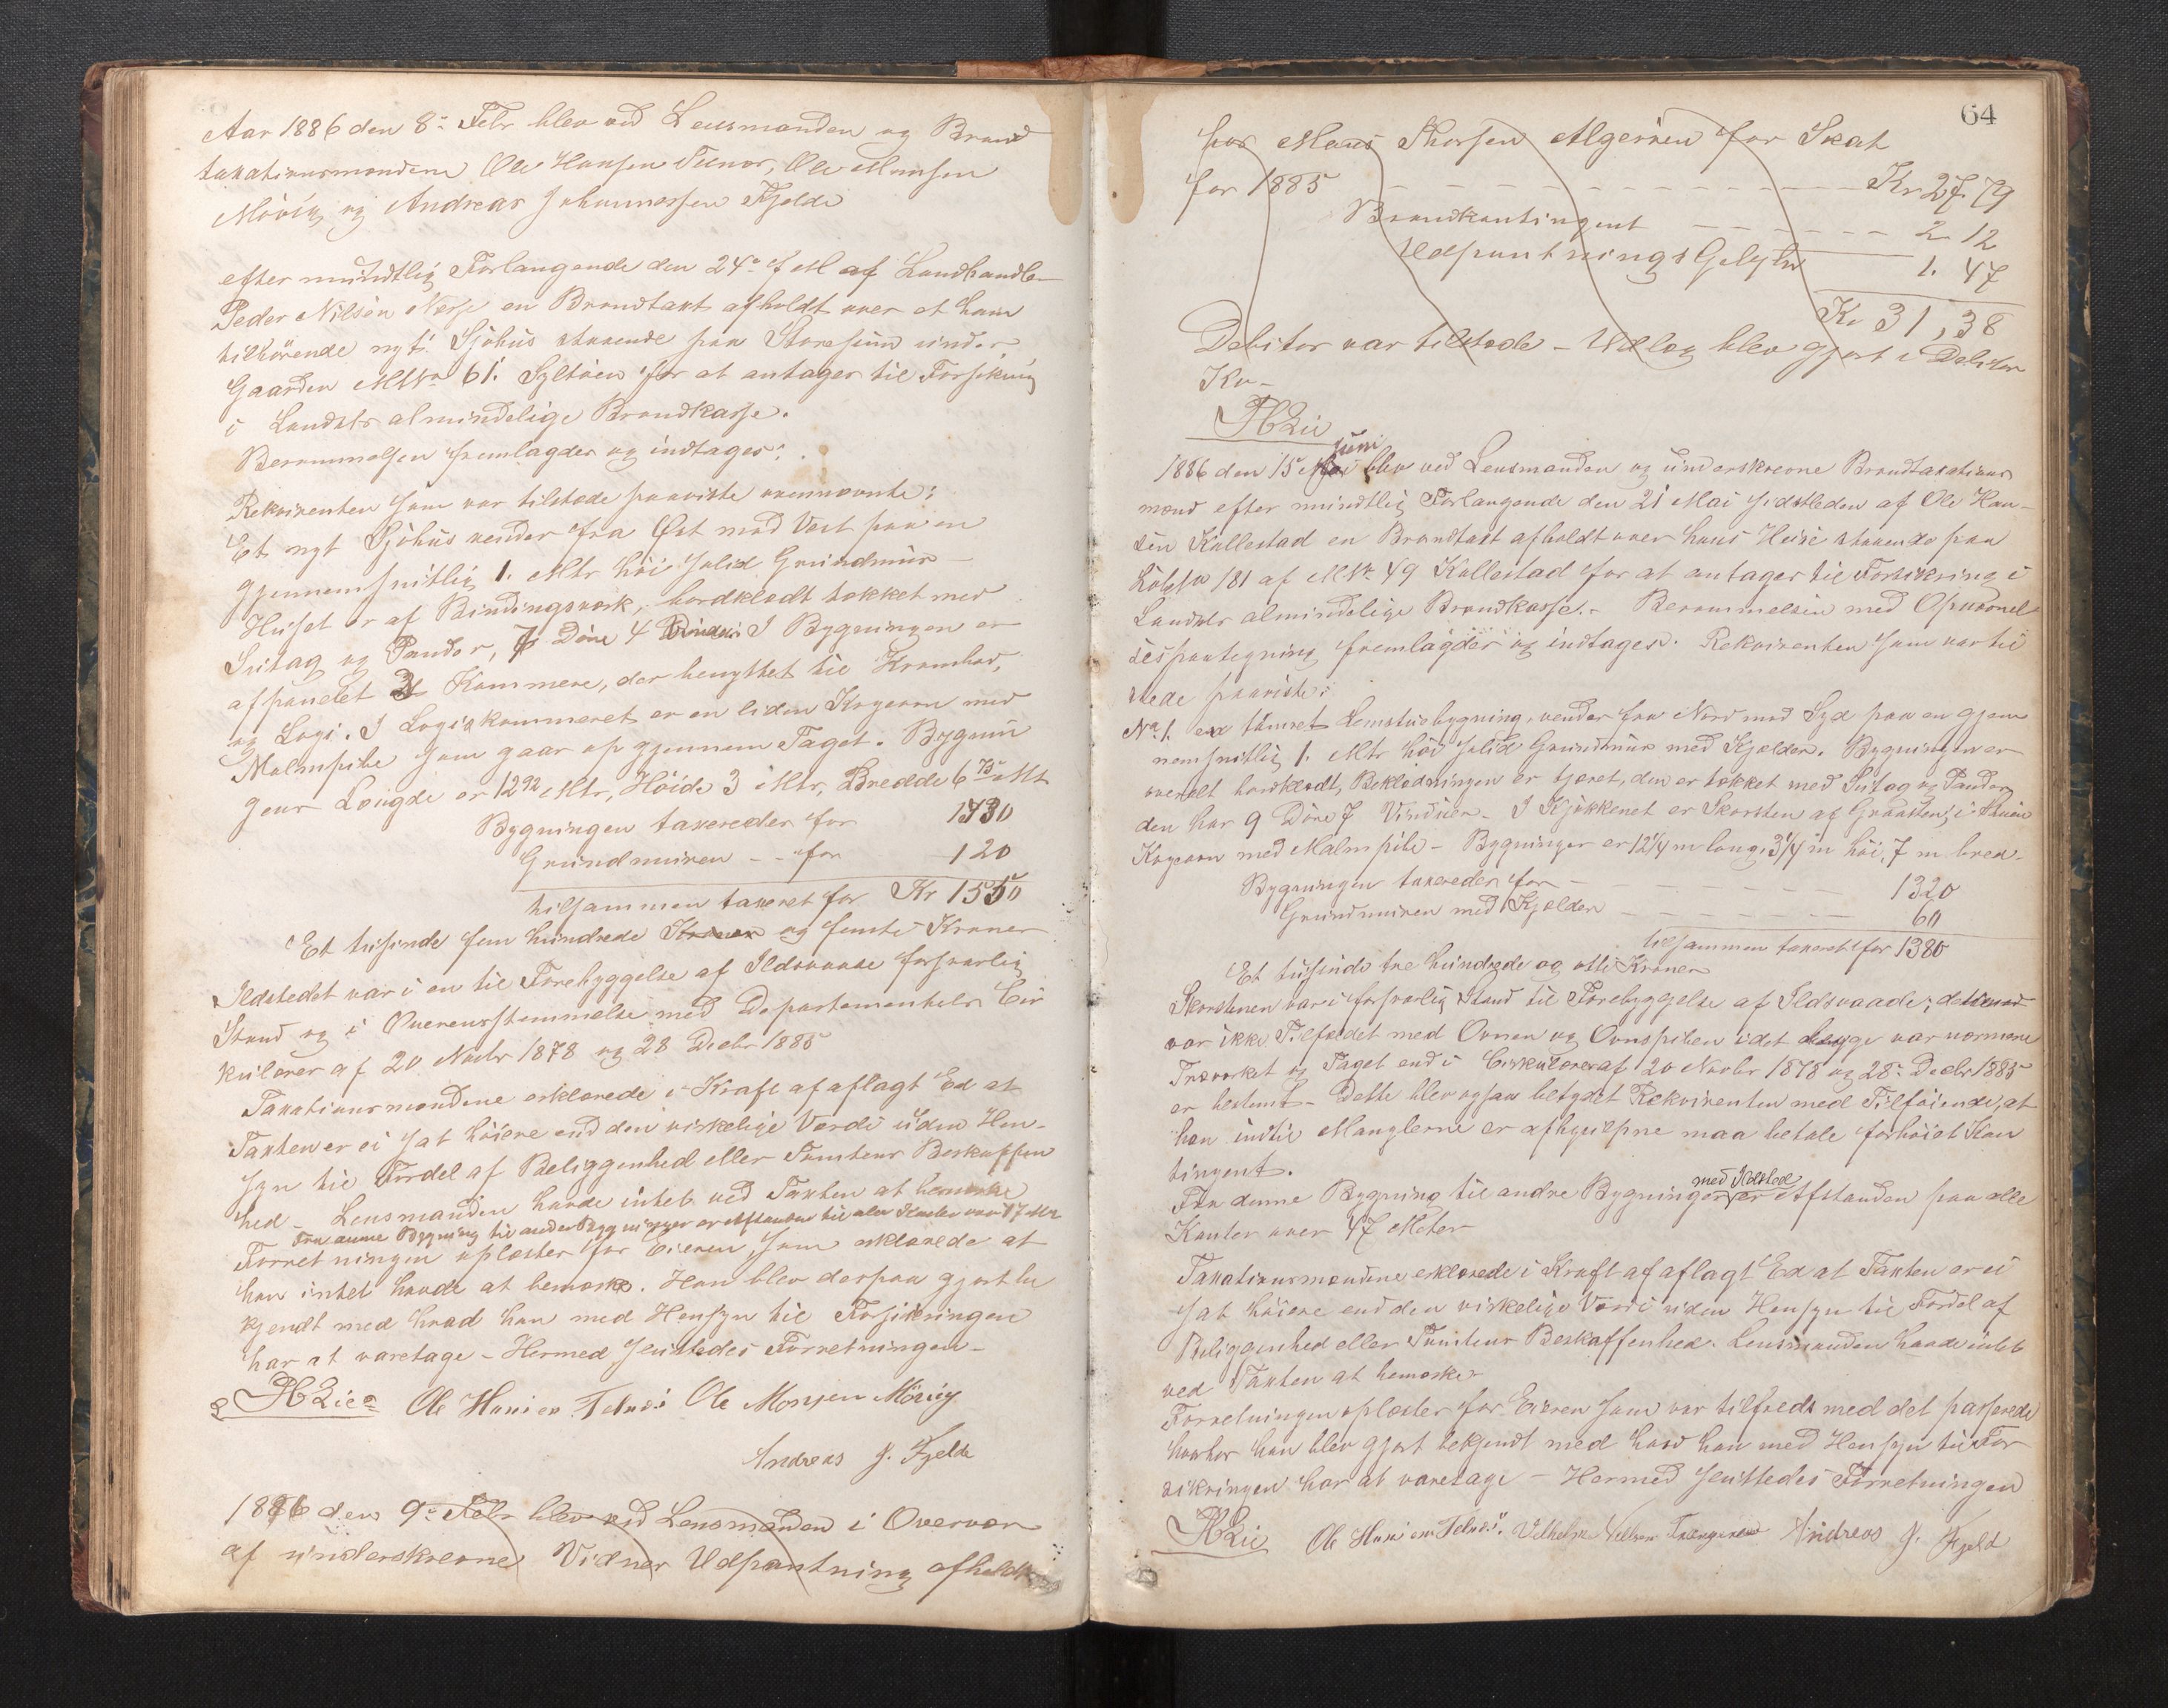 Aar 1886 den 8de Febr blev ved Lensmanden og Brand
taxationsmændene Ole Hansen Telnæs, Ole Monsen
Mövig og Andreas Johannessen Fjelde
efter mundtlig Forlangende den 24de f M af Landhandler
Peder Nilsen Nesse en Brandtaxt afholdt over et ham
tilhörende nyt Sjöhus staaende paa Storesund under
Gaarden MNo 61. Syltöen for at antages til Forsikring
i Landets almindelige Brandkasse.
Berammelsen fremlagdes og indtages:
Rekvirenten som var tilstede paaviste ovennævnte:
Et nyt Sjöhus vender fra Öst mod Vest paa en
gjennemsnitlig 1. Mtr höi solid Grundmur
Huset er af Bindingsværk, bordklædt tækket med
Sutag og Pander, 7 Döre 4 Vinduer I Bygningen er
afpanelet 2 Kammere, der benyttes til Krambod,
og Logi. I Logiskammeret er en liden Kogeovn med
Malmpibe som gaar op gjennem Taget. Bygnin
gens Længde er 12 92 Mtr, Höide 3 Mtr, Bredde 6 75 Mt
Bygningen taxeredes for 1430
Grundmuren - - for 120
tilsammen taxeret for Kr 1550
Et tusinde fem hundrede Kroner og femti Kroner
Ildstedet var i en til Forebyggelse af Ildsvaade forsvarlig
Stand og i Overensstemmelse med Departementets Cir
kulærer af 20 Novbr 1878 og 28 Decbr 1885
Taxationsmændene erklærede i Kraft af aflagt Ed at
Taxten er ei sat höiere end den virkelige Værdi uden Hen-
syn til Fordel af Beliggenhed eller Tomtens Beskaffen
hed - Lensmanden havde intet ved Taxten at bemærke
Fra denne Bygning til andre Bygninger er Afstanden til alle Kanter over 17 Mtr
Forretningen oplæstes for Eieren, som erklærede at
han intet havde at bemærke. Han blev derpaa gjort be
kjendt med hvad han med Hensyn til Forsikringen
har at varetage - Hermed sluttedes Forretningen -
Ole Hansen Telnæs Ole Monsen Mövig
Andreas J. Fjelde
1886 den 9de Febr blev ved Lensmanden i Overvær
af underskrevne Vidner Udpantning afholdt
64
hos Mons Thorsen Algeröen for Skat
for 1885 - - - Kr 27.79
Brandkontingent - - - 2 12
Udpantnings Gebyhr 1. 47
Kr 31,38
Debitor var tilstede - Udlæg blev gjort i Debitors
Ko -
Juni
1886 den 15 Mai blev ved Lensmanden og underskrevne Brandtaxations
mænd efter mundtlig Forlangende den 21 Mai sidstleden af Ole Han-
sen Kallestad en Brandtaxt afholdt over hans Huse staaende paa
LöbNo 181 af MNo 49 Kallestad for at antages til Forsikring i
Landets almindelige Brandkasse. - Berammelsen med Opnævnel
sespaategning fremlagdes og indtages. Rekvirenten som var til
stede paaviste:
No 1. en tömret Lemstuebygning, vender fra Nord mod Syd paa en gjen
nemsnitlig 1. Mtr höi solid Grundmur med Kjælder. Bygningen er
overalt bordklædt, Beklædningen er tjæret, den er tækket med Sutag og Pander
den har 9 Döre 7 Vinduer. I Kjökkenet er Skorsten af Graasten, i Stuen
Kogeovn med Malmpibe - Bygningen er 12 1/4 m lang, 3 1/4 m höi, 7 m bred.
Bygningen taxeredes for - 1320
Grundmuren med Kjælder - 60
tilsammen taxeret for 1380
Et tusinde tre hundrede og otti Kroner
Skorstenen var i forsvarlig Stand til Forebyggelse af Ildsvaade; dette
var ikke Tilfældet med Ovnen og Ovnspiben idet begge var nærmere
Træværket og Taget end i Cirkulærer af 20 Novbr 1878 og 28de Decbr 1885
er bestemt - Dette blev ogsaa betydet Rekvirenten med Tilföiende, at
han indtil Manglerne er afhjulpne maa betale forhöiet Kon
tingent.
med Ildsted
Fra denne Bygning til andre Bygninger er Afstanden paa alle
Kanter over 47 Meter
Taxationsmændene erklærede i Kraft af aflagt Ed at Taxten er ei
sat höiere end den virkelige Værdi uden Hensyn til Fordel af
Beliggenhed eller Tomtens Beskaffenhed. Lensmanden havde intet
ved Taxten at bemærke
Forretningen oplæstes for Eieren som var tilfreds med det passerede
hvorhos han blev gjort bekjendt med hvad han med Hensyn til For
sikringen har at varetage - Hermed sluttedes Forretningen
Ole Hansen Telnæs. Vilhelm Nilsen Andreas J. Fjeld